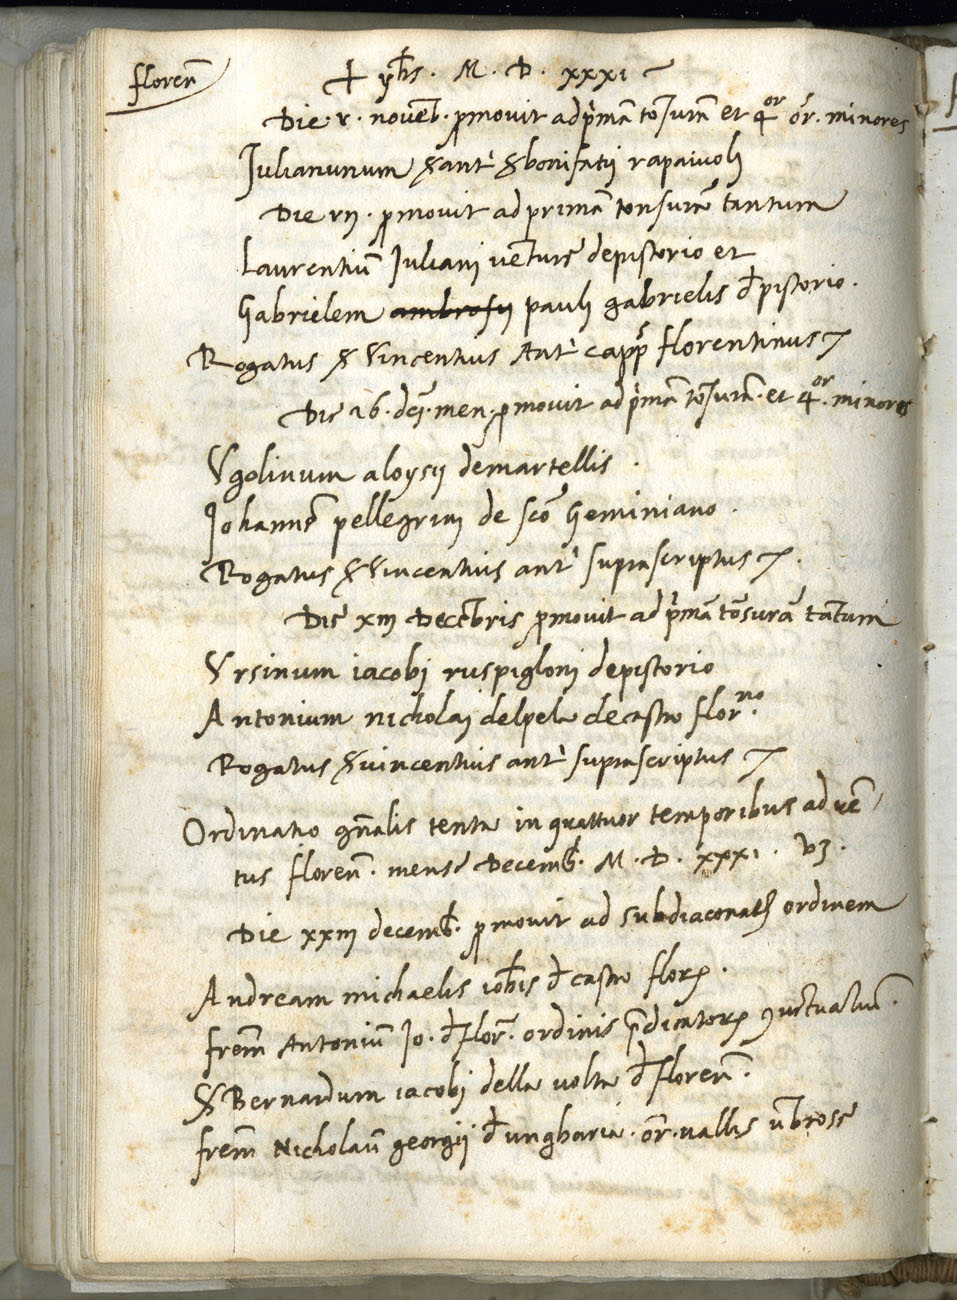 floren̄
+ yhs · M · D · xxxi
Die · v · novēb · ꝓmovit ad p̄mā tōsurā et 4or or̄ · minores
Julianum ant̄ bonifatij rapaivoli
Die vij · ꝓmovit ad primā tonsurā tantum
Laurentiū Juliani vēture de pistorio et
Gabrielem ambrosij pauli gabrielis đ pistorio ·
Rogatus Vincentius Ant̄ capp̄ florentinus
Die 16 · dc̄i · men · ꝓmovit ad p̄mā tōsurā · et 4or · minores
Ugolinum aloysij de martellis ·
Johannē pellegrini de sc̄o Geminiano ·
Rogatus Vincentius ant̄ suprascriptus
Die xiij Decēbris ꝓmovit ad p̄mā tōsurā tātum
Ursinum iacobi ruspigloni de pistorio
Antonium nicholai del pela de castro flor·no
Rogatus vincentius ant̄ suprascriptus
Ordinatio gn̄alis tenta in quattuor temporibus adven
tus floren̄ · mense Decemb̄ · M · D · xxxi · vꝫ ·
Die xxiij decemb̄ · ꝓmovit ad subdiaconatꝰ ordinem
Andream michaelis iohīs đ castro flor ·
frem̄ Antoniū Jo · đ flor̄ · ordinis p̄dicator ꝯvētualiū ·
Bernardum iacobi della volta đ floren̄ ·
frem̄ Nicholaū georgij đ ungharia · or̄ · vallis ūbrose